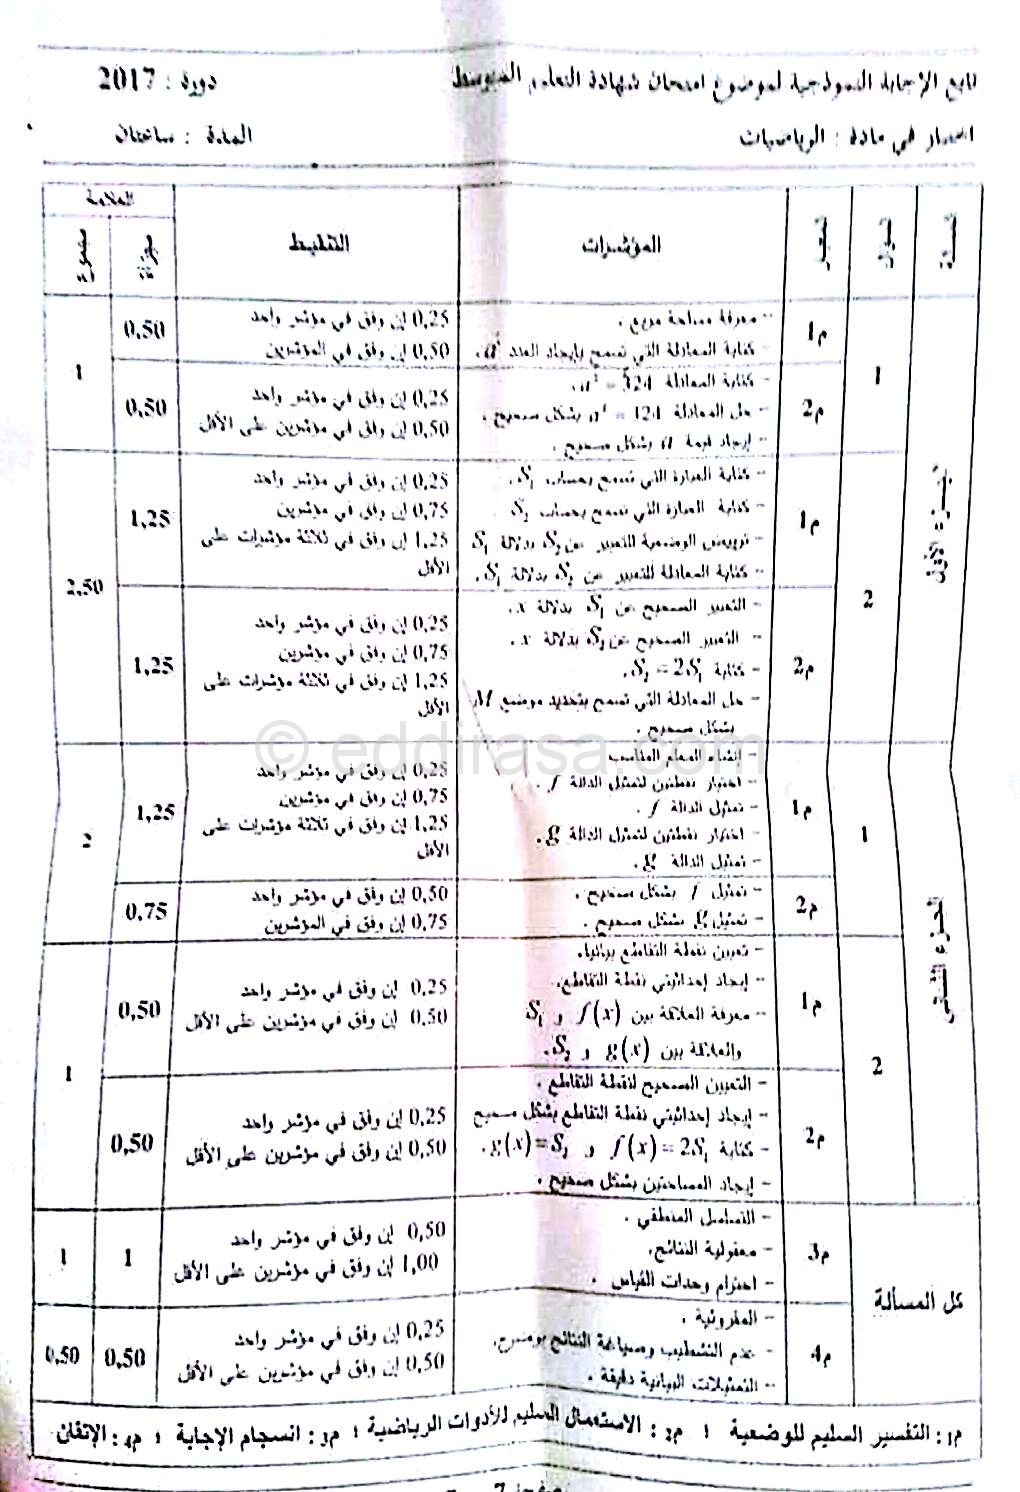 تابع الإجابة النموذجية لموضوع امتحان شهادة التعليم المتوسط دورة : 2017
اختبار في مادة : الرياضيات المادة : ساعتان
العلامة
سؤال المؤشرات التنقيط مجزأة مجموع
الجزء الأول
1
م1
- معرفة مساحة مربع .
- كتابة المعادلة التي تسمح بإيجاد العدد a .
0,25 إن وفق في مؤشر واحد
0,50 إن وفق في المؤشرين
0,50
1
م2
- كتابة المعادلة
- حل المعادلة بشكل صحيح .
- إيجاد قيمة a بشكل صحيح .
0,25 إن وفق في مؤشر واحد
0,50 إن وفق في مؤشرين على الأقل
0,50
2
م1
- كتابة العبارة التي تسمح بحساب S₁ .
- كتابة العبارة التي تسمح بحساب S₂ .
- ترييض الوضعية للتعبير عن S₂ بدلالة S₁
- كتابة المعادلة للتعبير عن S₂ بدلالة S₁ .
0,25 إن وفق في مؤشر واحد
0,75 إن وفق في مؤشرين
1,25 إن وفق في ثلاثة مؤشرات على
الأقل
1,25
2,50
م2
- التعبير الصحيح عن S₁ بدلالة x .
- التعبير الصحيح عن S₂ بدلالة x .
- كتابة S₂ = 2S₁ .
- حل المعادلة التي تسمح بتحديد موضع M
بشكل صحيح .
0,25 إن وفق في مؤشر واحد
0,75 إن وفق في مؤشرين
1,25 إن وفق في ثلاثة مؤشرات على
الأقل
1,25
© eddirasa.com
الجزء الثاني
1
م1
- إنشاء المعلم المناسب
- اختيار نقطتين لتمثيل الدالة f .
- تمثيل الدالة f .
- اختيار نقطتين لتمثيل الدالة g .
- تمثيل الدالة g .
0,25 إن وفق في مؤشر واحد
0,75 إن وفق في مؤشرين
1,25 إن وفق في ثلاثة مؤشرات على
الأقل
1,25
2
م2
- تمثيل f بشكل صحيح .
- تمثيل g بشكل صحيح .
0,50 إن وفق في مؤشر واحد
0,75 إن وفق في المؤشرين
0,75
2
م1
- تعيين نقطة التقاطع بيانيا.
- إيجاد إحداثيتي نقطة التقاطع.
- معرفة العلاقة بين f(x) و S₁
والعلاقة بين g(x) و S₂ .
0,25 إن وفق في مؤشر واحد
0,50 إن وفق في مؤشرين على الأقل
0,50
1
م2
- التعيين الصحيح لنقطة التقاطع .
- إيجاد إحداثيتي نقطة التقاطع بشكل صحيح
- كتابة f(x) = 2S₁ و g(x) = S₂ .
- إيجاد المساحتين بشكل صحيح .
0,25 إن وفق في مؤشر واحد
0,50 إن وفق في مؤشرين على الأقل
0,50
كل المسألة
م3
- التسلسل المنطقي .
- معقولية النتائج.
- احترام وحدات القياس .
0,50 إن وفق في مؤشر واحد
1,00 إن وفق في مؤشرين على الأقل
1
1
م4
- المقروئية .
- عدم التشطيب وصياغة النتائج بوضوح.
- التمثيلات البيانية دقيقة .
0,25 إن وفق في مؤشر واحد
0,50 إن وفق في مؤشرين على الأقل
0,50
0,50
م1: التفسير السليم للوضعية ؛ م2: الاستعمال السليم للأدوات الرياضية ؛ م3: انسجام الإجابة ؛ م4: الإتقان